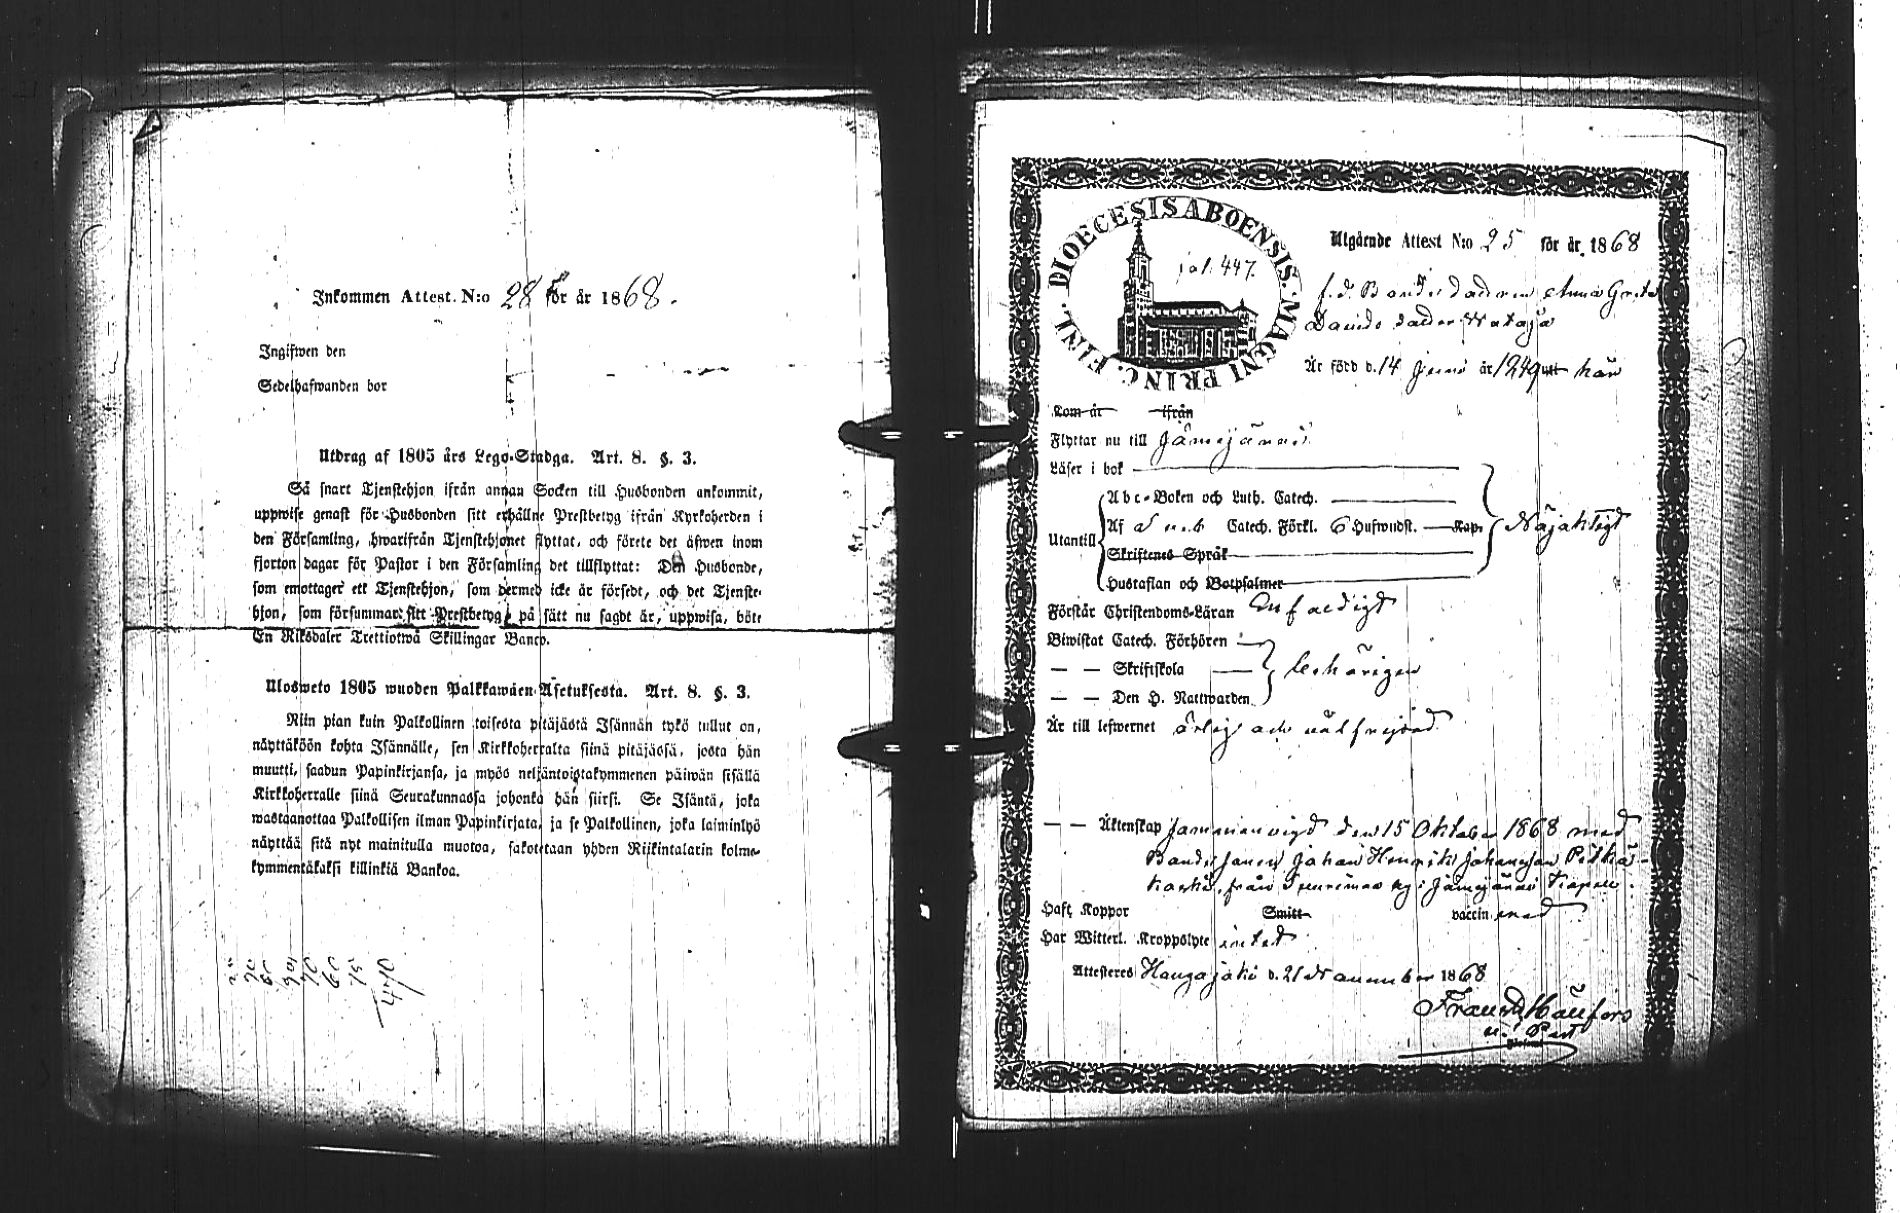 Inkommen Attest. N:o 28 för år 1868.
Ingifwen den
Sedelhafwanden bor
Utdrag af 1805 års Lego-Stadga. Art. 8. §. 3.
Så snart Tjenstehjon ifrån annan Socken till Husbonden ankommit,
uppwise genast för Husbonden sitt erhållne Prestbetyg ifrån Kyrkoherden i
den Församling, hwarifrån Tjenstehjonet flyttat, och förete det äfwen inom
fjorton dagar för Pastor i den Församling det tillflyttat: Den Husbonde,
som emottager ett Tjenstehjon, som dermed icke är försedt, och det Tjenste-
hjon, som försummar sitt Prestbetyg, på sätt nu sagdt är, uppwisa, böte
En Riksdaler Trettiotwå Skillingar Banco.
Ulosweto 1805 wuoden Palkkawäen-Asetuksesta. Art. 8. §. 3.
Niin pian kuin Palkollinen toisesta pitäjästä Isännän tykö tullut on,
näyttäköön kohta Isännälle, sen Kirkkoherralta siinä pitäjässä, josta hän
muutti, saadun Papinkirjansa, ja myös neljäntoistakymmenen päiwän sisällä
Kirkkoherralle siinä Seurakunnassa johonka hän siirsi. Se Isäntä, joka
wastaanottaa Palkollisen ilman Papinkirjata, ja se Palkollinen, joka laiminlyö
näyttää sitä nyt mainitulla muotoa, sakotetaan yhden Riikintalarin kolme-
kymmentäkaksi killinkiä Bankoa.
DIOECESIS ABOENSIS. MAGNI PRINC. FINL.
447.
Utgående Attest N:o 25 för år 1868
f.d. Bondedottren Anna Greta
Davidsdotter
Är född d. 14 Juni år 1849 uti här
Kom år ifrån
Flyttar nu till Jämijärvi
Läser i bok
Abc-Boken och Luth. Catech.
Utantill Af D. u. b. Catech. Förkl. 6 Hufwudst. Kap. Nöjaktigt
Skriftenes Språk
Hustaflan och Botpsalmer
Förstår Christendoms-Läran Enfaldigt
Biwistat Catech. Förhören
— — Skriftskola behörigen
— — Den H. Nattwarden
Är till lefwernet ärlig och välfrejdad
— — Äktenskap sammanvigd den 15 Oktober 1868 med
Bondesonen Johan Henrik Johansson Pitkä-
koski från by i Jämijärvi kapell.
Haft Koppor Smitt- vaccin med
Har Witterl. Kroppslyte intet
Attesteres Kangasjoki d. 21 November 1868
Frans
v. Past